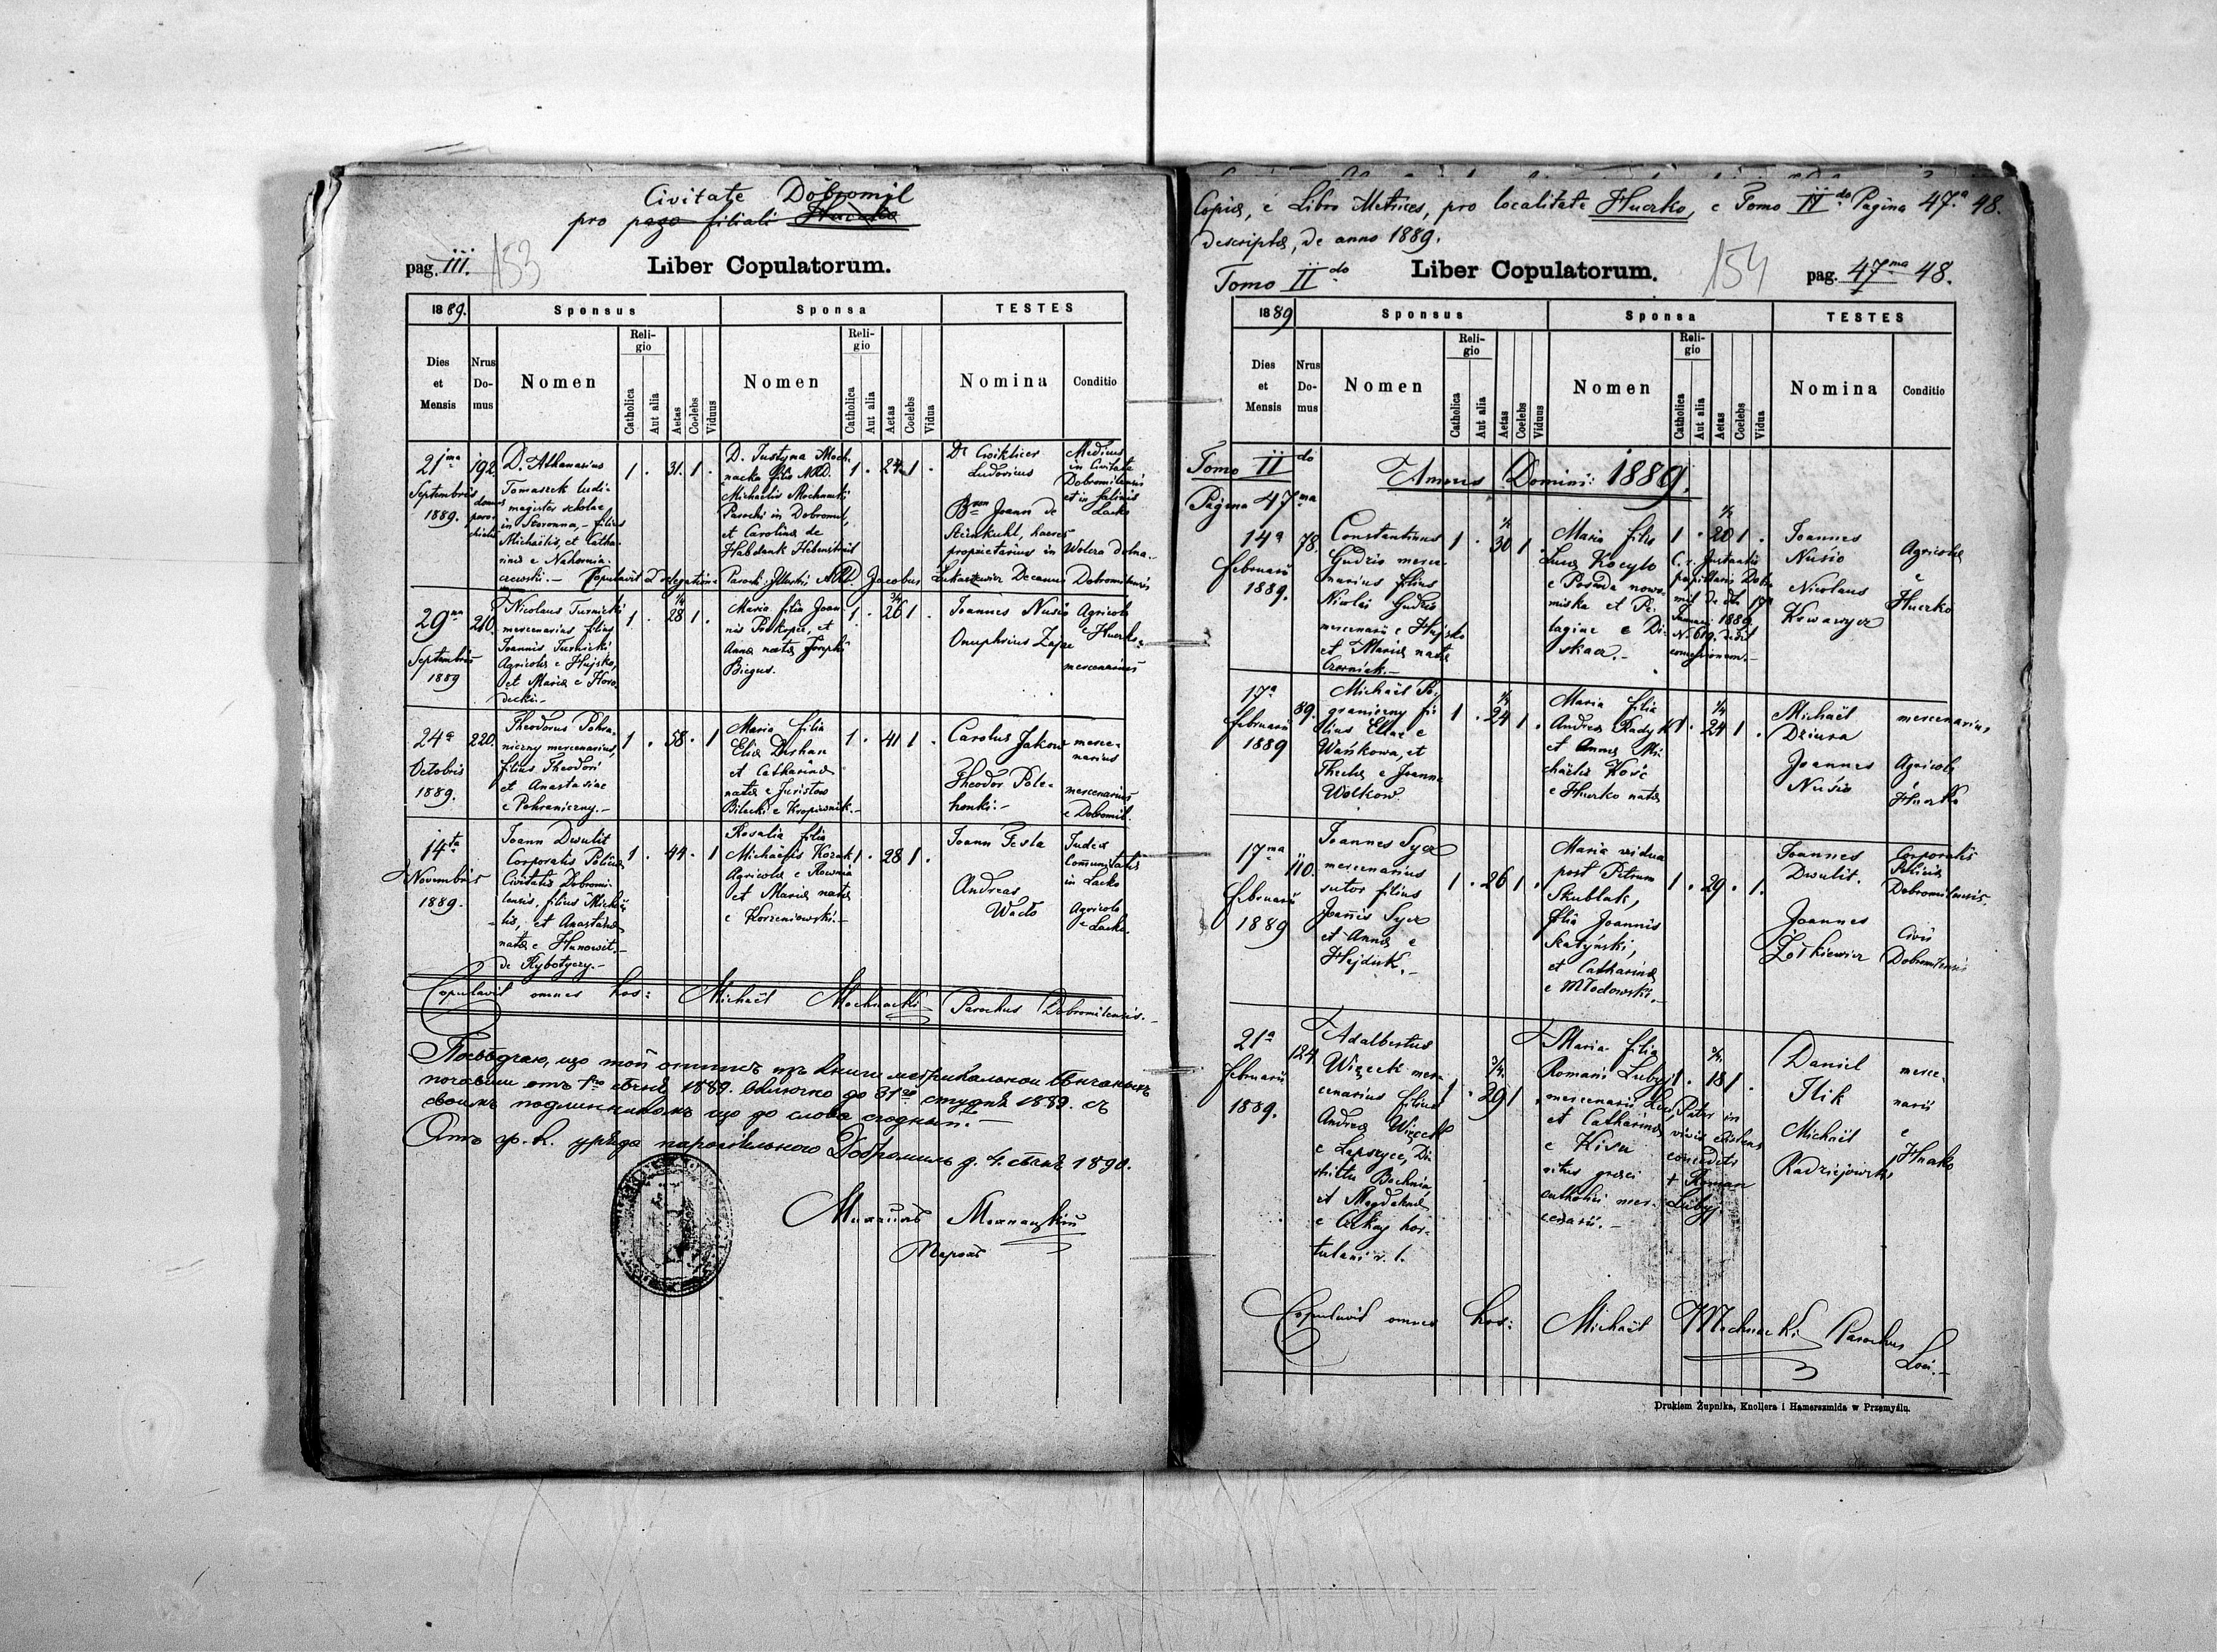 Civitate Dobromil
pro pago filiali Huczko
pag. III. 153
Liber Copulatorum.
1889.
Sponsus
Sponsa
TESTES
Dies et Mensis
Nrus Domus
Nomen
Religio
Catholica
Aut alia
Aetas
Coelebs
Viduus
Nomen
Religio
Catholica
Aut alia
Aetas
Coelebs
Vidua
Nomina
Conditio
21ma
Septembris
1889.
192.
D. Athanasius
Tomaszek ludi-
magister scholae
in Staronna, filius
Michaëlis, et Catha-
rinae e
1 . 31. 1 .
D. Justyna Moch-
nacka filia
Michaëlis Mochnacki
Parochi in Dobromil,
et Carolina de
Habdank
1 . 24 1 .
Dr
Ludovicus
Joann de
haeres
proprietarius in
Medicus
in Civitate
Dobromilensi
et in Salinis
Lacko
Copulavit
Jacobus
Decanus Dobromilensis
29na
Septembris
1889
210.
Nicolaus Turnicki
mercenarius filius
Joannis Turnicki
Agricolae e Hujsko,
et Maria e Horo-
decki.-
1 . 28 1 .
Maria filia Joan-
nis Prokopic, et
Anna nata Josephi
Biegus.
1 . 26 1 .
Joannes Nusio
Onuphrius Zajac
Agricola
e Huczko.
mercenarius
24a
Octobris
1889.
220.
Theodorus Pohra-
niczny mercenarius,
filius Theodori
et Anastasiae
e Pohraniczny.-
1 . 58 . 1
Maria filia
Eliae Dushan
et Catharina
nata e
Bilecki e Kropiwnik.-
1 . 41 1 .
Carolus Jakow
Theodor Pole-
merce-
narius
mercenarius
e Dobromil.
14ta
Novembris
1889.
Joann Dwulit
Corporalis Policiae
Civitatis Dobromi-
lensis, filius Michaë-
lis, et Anastasia
nata e Hanowit.-
de Rybotyczy.-
1 . 44 . 1
Rosalia filia
Michaëlis Kozak
Agricola e Rownia
et Maria nata
e Korzeniowski.-
1 . 28 1 .
Joann Fesla
Andreas
Wacło
Judex
Communitatis
in Lacko
Agricola
e Lacko.
Copulavit omnes hos: Michaël Mochnacki Parochus Dobromilensis.-
Посвѣдчаю, що той отписъ изъ книги метрикальнои
почавши отъ 1го сѣчня 1889. включно до 31го студня 1889. съ
своимъ подлинникомъ що до слова сходный.-
Отъ гр. к. уряда парохіяльного Добромиль д. 4. сѣчня 1890.
Михаилъ Мохнацкій
парохъ
Copia, e Libro Metrices, pro localitate Huczko, e Tomo IIdo Pagina 47a 48.
descripta, de anno 1889.
Tomo IIdo
Liber Copulatorum.
154
pag. 47ma 48.
1889
Sponsus
Sponsa
TESTES
Dies et Mensis
Nrus Domus
Nomen
Religio
Catholica
Aut alia
Aetas
Coelebs
Viduus
Nomen
Religio
Catholica
Aut alia
Aetas
Coelebs
Vidua
Nomina
Conditio
Tomo IIdo
Pagina 47ma
Annus Domini: 1889.
14a
februarii
1889.
78.
Constantinus
Gudzio merce-
narius filius
Nicolai Gudzio
mercenarii e Hujsko
et Maria nata
Czerniak.-
1 . 30 1 .
Maria filia
Luca Kocylo
e Posada nowo-
miska et Pe-
lagiae e Di-
skaa.-
1 . 20 1 .
Joannes
Nusio
Nicolaus
Agricola
e
Huczko
17a
februarii
1889
89.
Michaël Po-
graniczny fi-
lius Eliae e
Wańkowa, et
Thecla e Joanne
Wolkow.
1 . 24 1 .
Maria filia
Andrea
et Anna Mi-
chaëlis Kość
e Huczko nata
1 . 24 1 .
Michaël
Dziura
Joannes
Nusio
mercenarius
Agricola
e
Huczko
17ma
februarii
1889
110.
Joannes Sycz
mercenarius
sutor filius
Joannis Sycz
et Anna e
Hejduk.-
1 . 26 1 .
Maria vidua
post Petrum
Skublak,
filia Joannis
Ratyński,
et Catharina
e Młodowski.-
1 . 29 . 1.
Joannes
Dwulit.
Joannes
Żołkiewicz
Corporalis
Policiae
Dobromilensis.
Civis
Dobromilensis
21a
februarii
1889.
124.
Adalbertus
Więcek mer-
cenarius filius
Andrea Więcek
e Lapszyce, Di-
strictu Bochnia
et Magdalena
e Czekaj hor-
tulani r. l.
1 . 29 1
Maria filia
Romani Lubyj
mercenarii
et Catharina
e Kisa
ritus graeci
catholici mer-
cenarii.-
1 . 18 1 .
Pater in
vivis existens
concedit
+ Roman
Lubyj
Daniel
Ilik
Michaël
Radziejowski
merce-
narii
e
Huczko
Copulavit omnes hos: Michaël Mochnacki Parochus
Loci.-
Drukiem Żupnika, Knollera i Hamerszmida w Przemyślu.